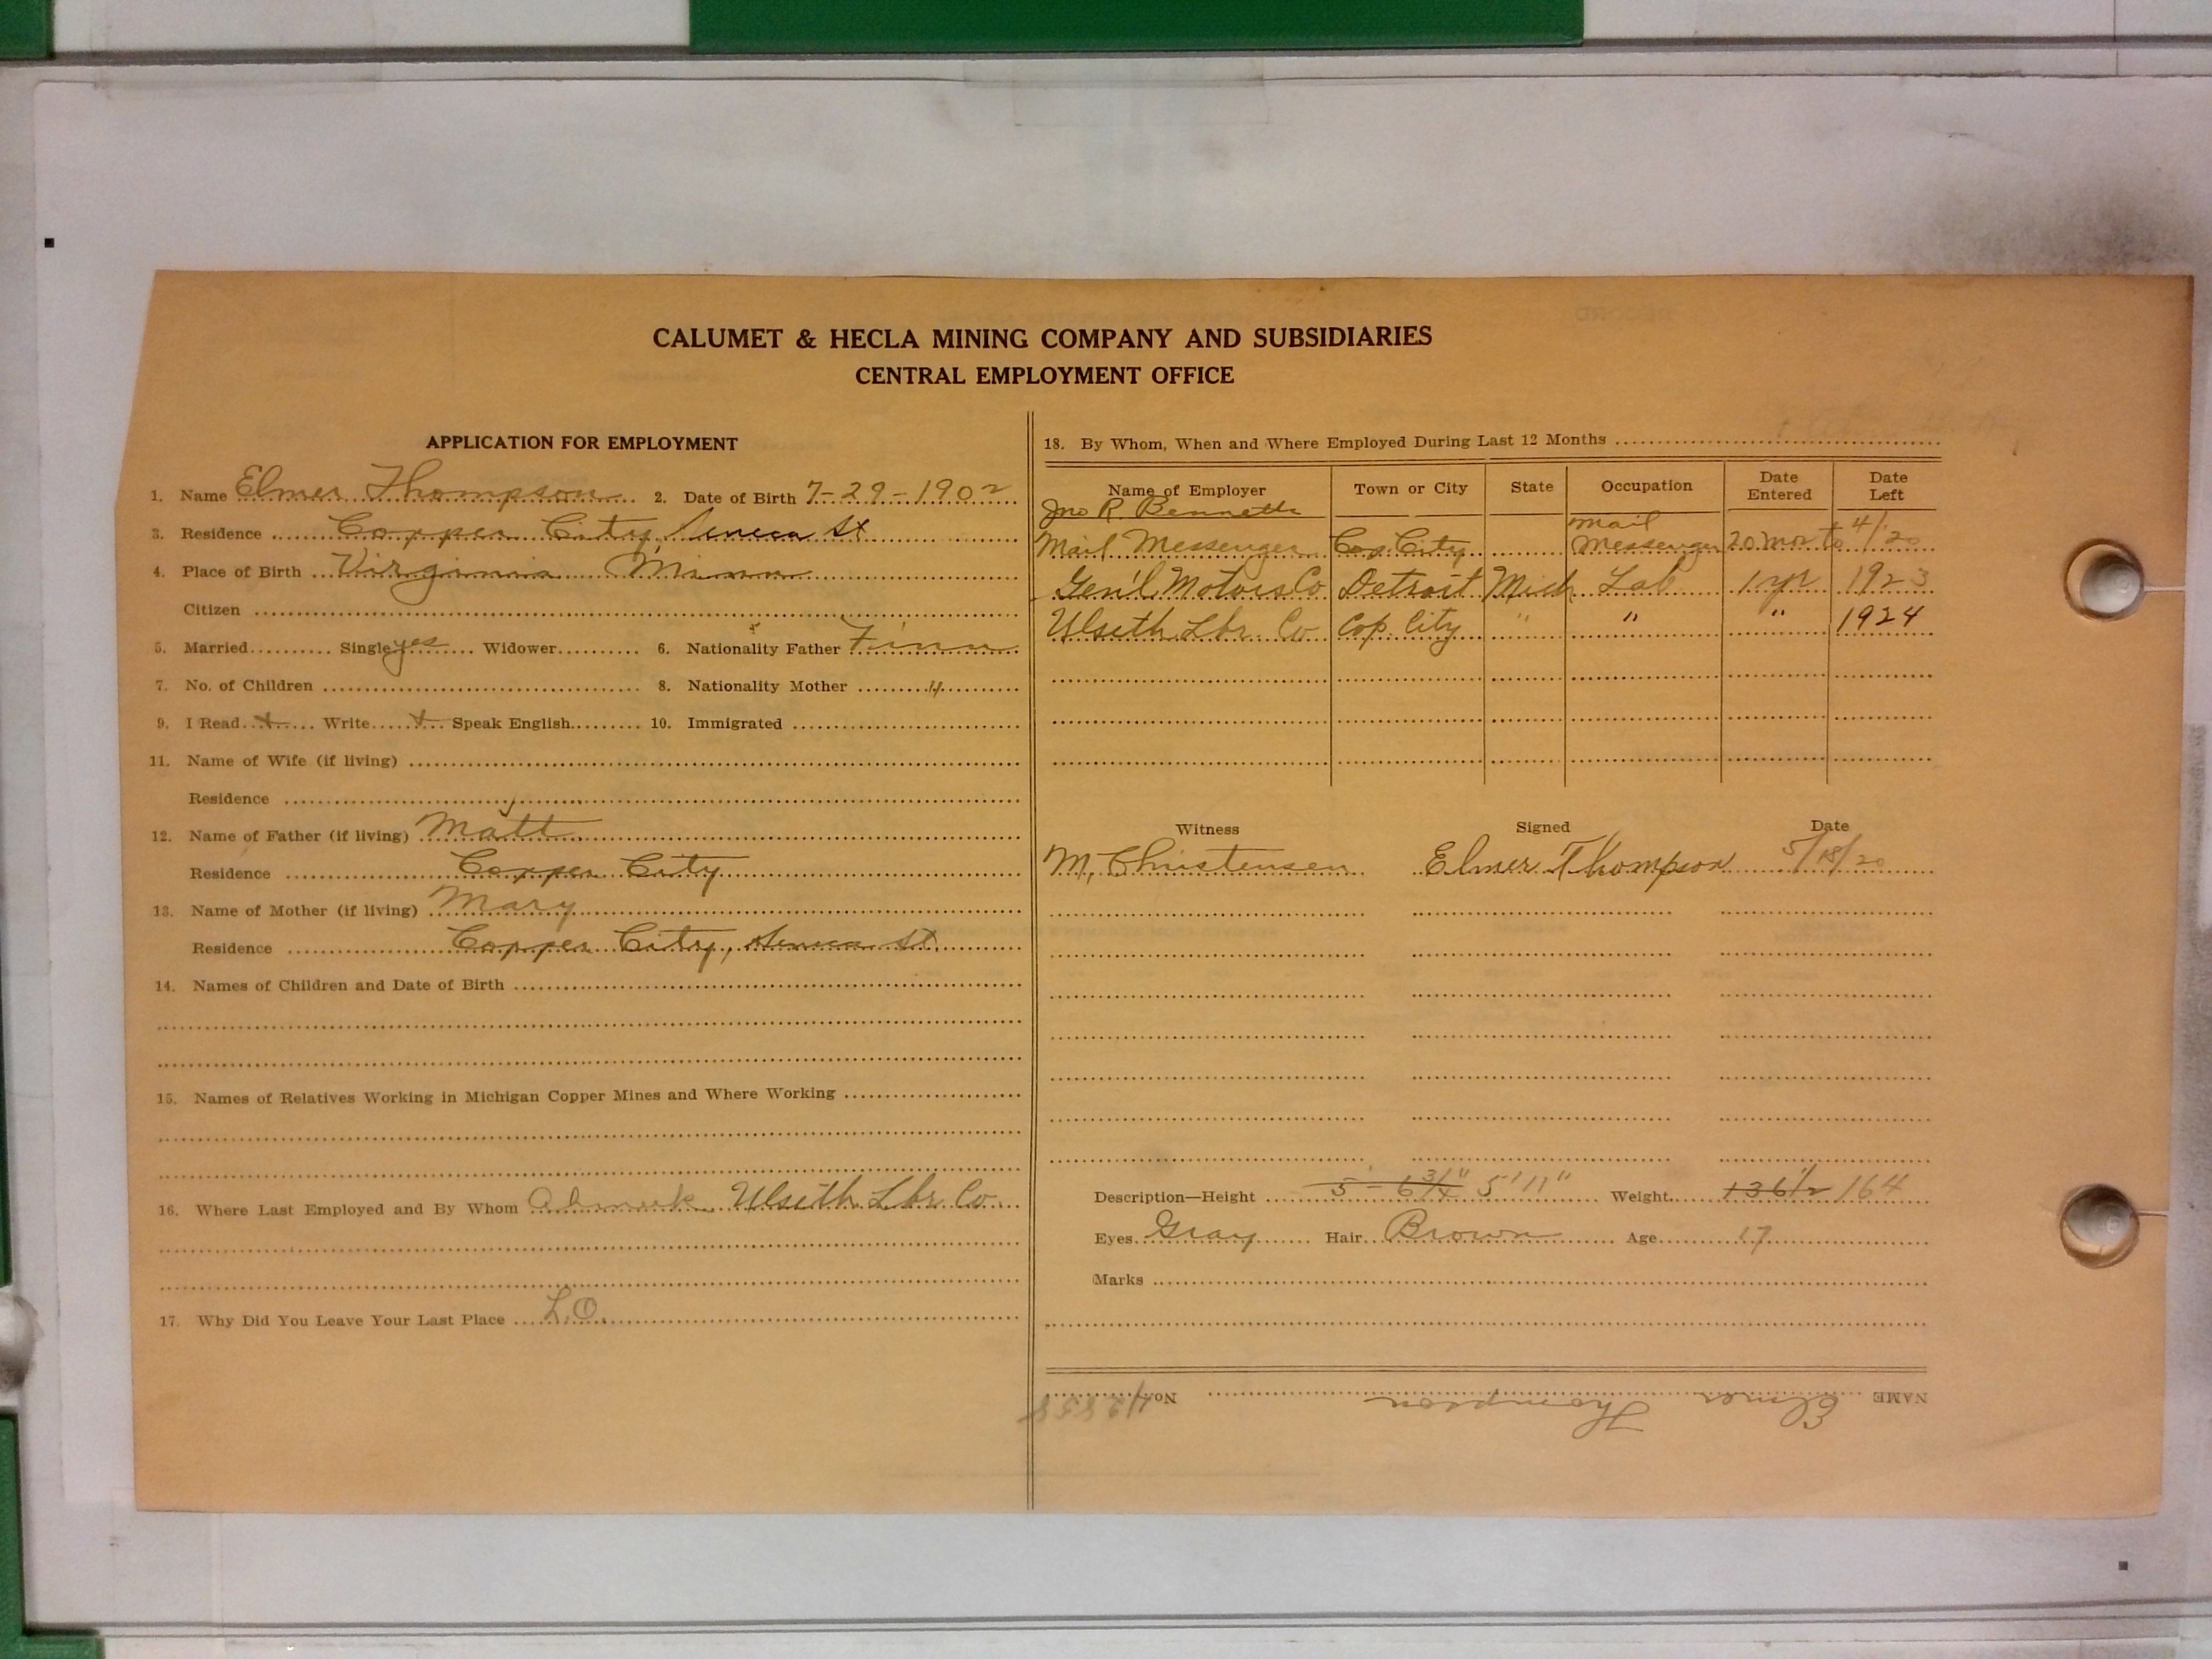 CALUMET & HECLA MINING COMPANY AND SUBSIDIARIES
CENTRAL EMPLOYMENT OFFICE
APPLICATION FOR EMPLOYMENT
1. Name Elmer Thompson 2. Date of Birth 7-29-1902
3. Residence Copper City, Seneca St
4. Place of Birth Virginia Minn
Citizen
5. Married Single yes Widower 6. Nationality Father Finn
7. No. of Children 8. Nationality Mother "
9. I Read + Write + Speak English 10. Immigrated
11. Name of Wife (if living)
Residence
12. Name of Father (if living) Matt
Residence Copper City
13. Name of Mother (if living) Mary
Residence Copper City, Seneca St
14. Names of Children and Date of Birth
15. Names of Relatives Working in Michigan Copper Mines and Where Working
16. Where Last Employed and By Whom Ahmeek Ulseth Lbr Co
17. Why Did You Leave Your Last Place L.O.
18. By Whom, When and Where Employed During Last 12 Months
Name of Employer Town or City State Occupation Date Entered Date Left
Jno R. Bennetts Mail
Mail Messenger Cop. City Messenger 20 mo to 4/20
Gen'l Motors Co Detroit Mich Lab 1 yr 1923
Ulseth Lbr Co Cop. City " " " 1924
Witness Signed Date
M. Christensen Elmer Thompson 5/18/20
Description—Height 5-6 3/4" 5'11" Weight 136 1/2 164
Eyes Gray Hair Brown Age 17
Marks
NAME Elmer Thompson No.